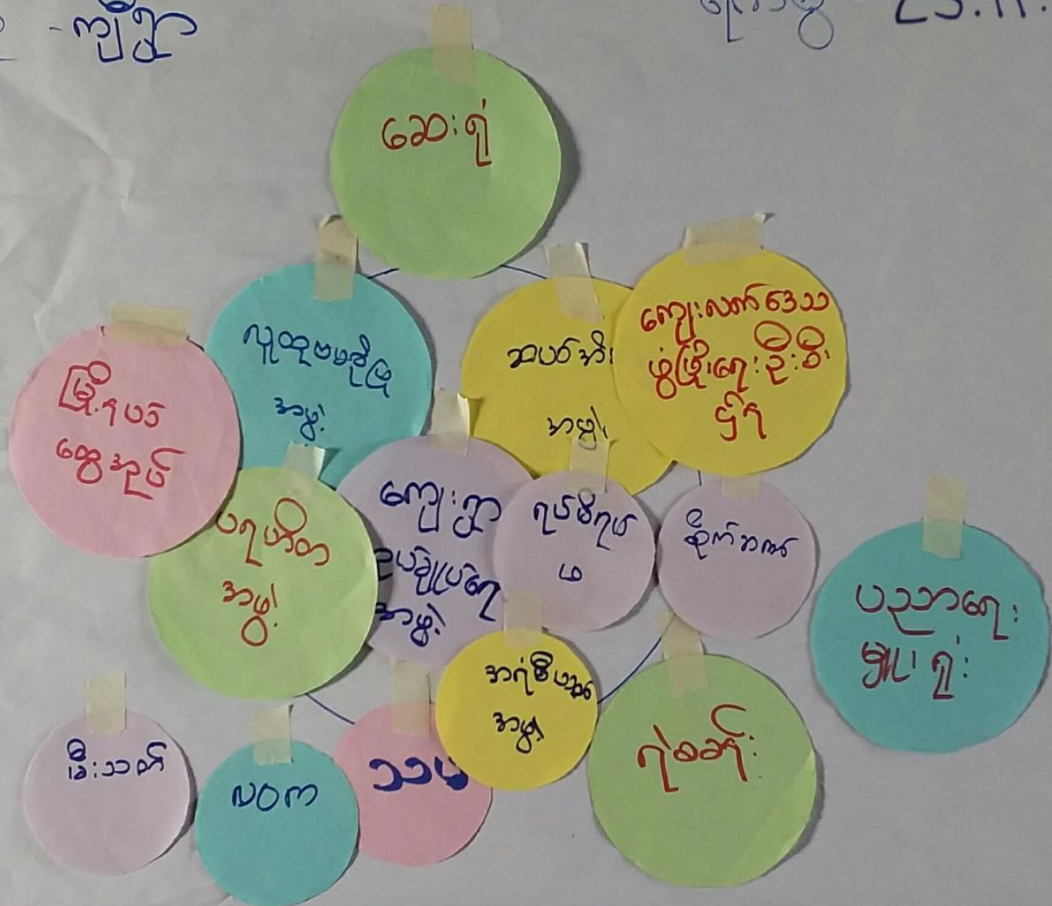 - ကျီရွာ
ဆေးရုံ
လူထုဗဟိုပြု
အဖွဲ့
ဆယ်အိမ်
အဖွဲ့
ကျေးလက်ဒေသ
ဖွံ့ဖြိုးရေးဦးစီး
ဌာန
မြို့ရပ်
ထွေအုပ်
ပရဟိတ
အဖွဲ့
ကျေးရွာ
အုပ်ချုပ်ရေ
အဖွဲ့
ရပ်မိရပ်
ဖ
စိုက်ဘဏ်
ပညာရေး
မှူးရုံး
အရံမီးသတ်
အဖွဲ့
မီးသတ်
လဝက
သသမ
ရဲစခန်း